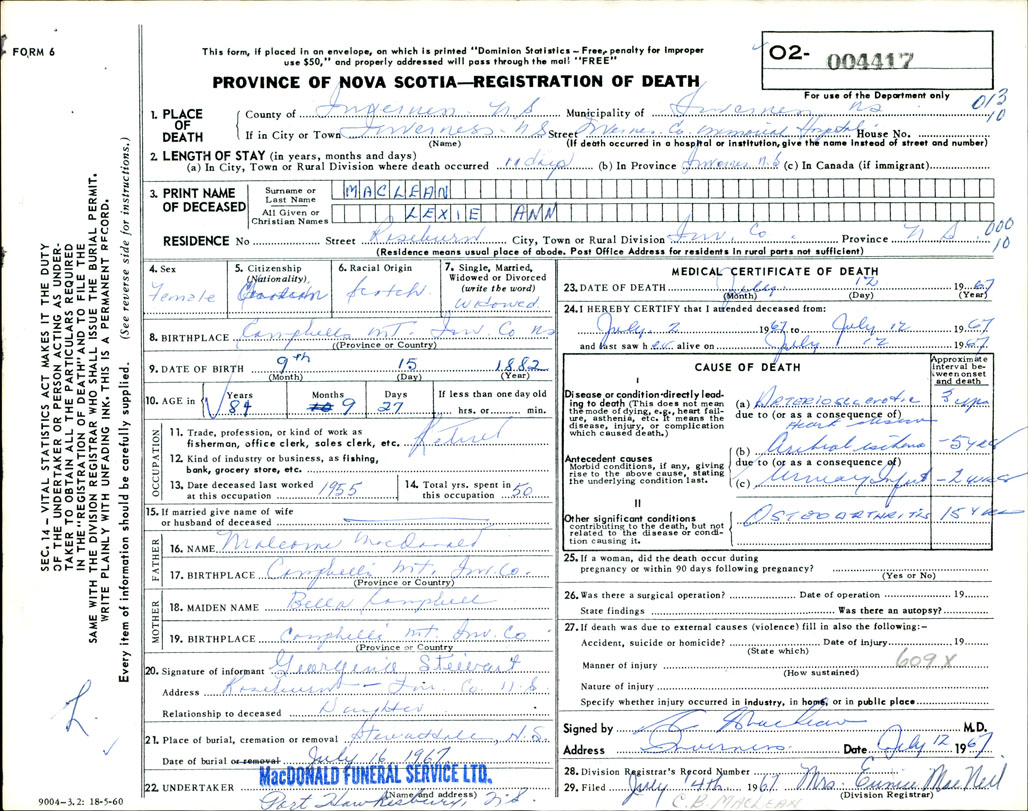 FORM 6
This form, if placed in an envelope, on which is printed "Dominion Statistics – Free, penalty for improper
use $50," and properly addressed will pass through the mail "FREE"
PROVINCE OF NOVA SCOTIA—REGISTRATION OF DEATH
O2- 004417
For use of the Department only
013
10
1. PLACE OF DEATH
County of Inverness N S Municipality of Inverness NS
If in City or Town Inverness N S Street Inverness Co. Memorial Hospital House No.
(Name) (If death occurred in a hospital or institution, give the name instead of street and number)
2. LENGTH OF STAY (in years, months and days)
(a) In City, Town or Rural Division where death occurred 11 days (b) In Province N.S (c) In Canada (if immigrant)
3. PRINT NAME OF DECEASED
Surname or Last Name MACLEAN
All Given or Christian Names LEXIE ANN
000
10
RESIDENCE No Street Roseburn City, Town or Rural Division Inv. Co. Province N S
(Residence means usual place of abode. Post Office Address for residents in rural parts not sufficient)
4. Sex Female
5. Citizenship (Nationality) Canadian
6. Racial Origin Scotch
7. Single, Married, Widowed or Divorced (write the word) Widowed
8. BIRTHPLACE Campbells Mt. Inv. Co NS
(Province or Country)
9. DATE OF BIRTH 9th 15 1882
(Month) (Day) (Year)
10. AGE in Years 84 Months 9 Days 27 If less than one day old
hrs. or min.
OCCUPATION
11. Trade, profession, or kind of work as
fisherman, office clerk, sales clerk, etc. Retired
12. Kind of industry or business, as fishing,
bank, grocery store, etc.
13. Date deceased last worked
at this occupation 1955
14. Total yrs. spent in
this occupation 50
15. If married give name of wife
or husband of deceased
FATHER
16. NAME Malcome MacDonald
17. BIRTHPLACE Campbells Mt. Inv. Co.
(Province or Country)
MOTHER
18. MAIDEN NAME Bella Campbell
19. BIRTHPLACE Campbells Mt. Inv. Co
(Province or Country)
20. Signature of informant Georgenie Stewart
Address Roseburn – Inv. Co. N.S
Relationship to deceased Daughter
21. Place of burial, cremation or removal Stewartdale, N.S.
Date of burial or removal July 16, 1967
22. UNDERTAKER MacDONALD FUNERAL SERVICE LTD.
(Name and address)
Port Hawkesbury, N.S.
MEDICAL CERTIFICATE OF DEATH
23. DATE OF DEATH July 12 1967
(Month) (Day) (Year)
24. I HEREBY CERTIFY that I attended deceased from:
July 2 1967 to July 12 1967
and last saw her alive on July 12 1967
CAUSE OF DEATH
Approximate interval between onset and death
I
Disease or condition directly leading to death (This does not mean the mode of dying, e.g., heart failure, asthenia, etc. It means the disease, injury, or complication which caused death.)
(a) Arteriosclerotic 3 yrs
due to (or as a consequence of)
Heart disease
Antecedent causes
Morbid conditions, if any, giving rise to the above cause, stating the underlying condition last.
(b) Cerebral ischemia – 5 yrs
due to (or as a consequence of)
(c) Urinary Infect – 2 weeks
II
Other significant conditions
contributing to the death, but not related to the disease or condition causing it.
OSTEOARTHRITIS 15 yrs
25. If a woman, did the death occur during
pregnancy or within 90 days following pregnancy?
(Yes or No)
26. Was there a surgical operation? Date of operation 19
State findings Was there an autopsy?
27. If death was due to external causes (violence) fill in also the following:–
Accident, suicide or homicide? Date of injury 19
(State which)
Manner of injury 609 X
(How sustained)
Nature of injury
Specify whether injury occurred in industry, in home, or in public place
Signed by MacLean M.D.
Address Inverness Date July 12 1967
28. Division Registrar's Record Number
29. Filed July 4th 1967 Mrs. Eunice MacNeil
(Division Registrar)
C. B. MACLEAN
SEC. 14 – VITAL STATISTICS ACT MAKES IT THE DUTY
OF THE UNDERTAKER OR PERSON ACTING AS UNDERTAKER TO OBTAIN ALL THE PARTICULARS REQUIRED
IN THE "REGISTRATION OF DEATH" AND TO FILE THE
SAME WITH THE DIVISION REGISTRAR WHO SHALL ISSUE THE BURIAL PERMIT.
WRITE PLAINLY WITH UNFADING INK. THIS IS A PERMANENT RECORD.
Every item of information should be carefully supplied. (See reverse side for instructions.)
9004-3.2: 18-5-60